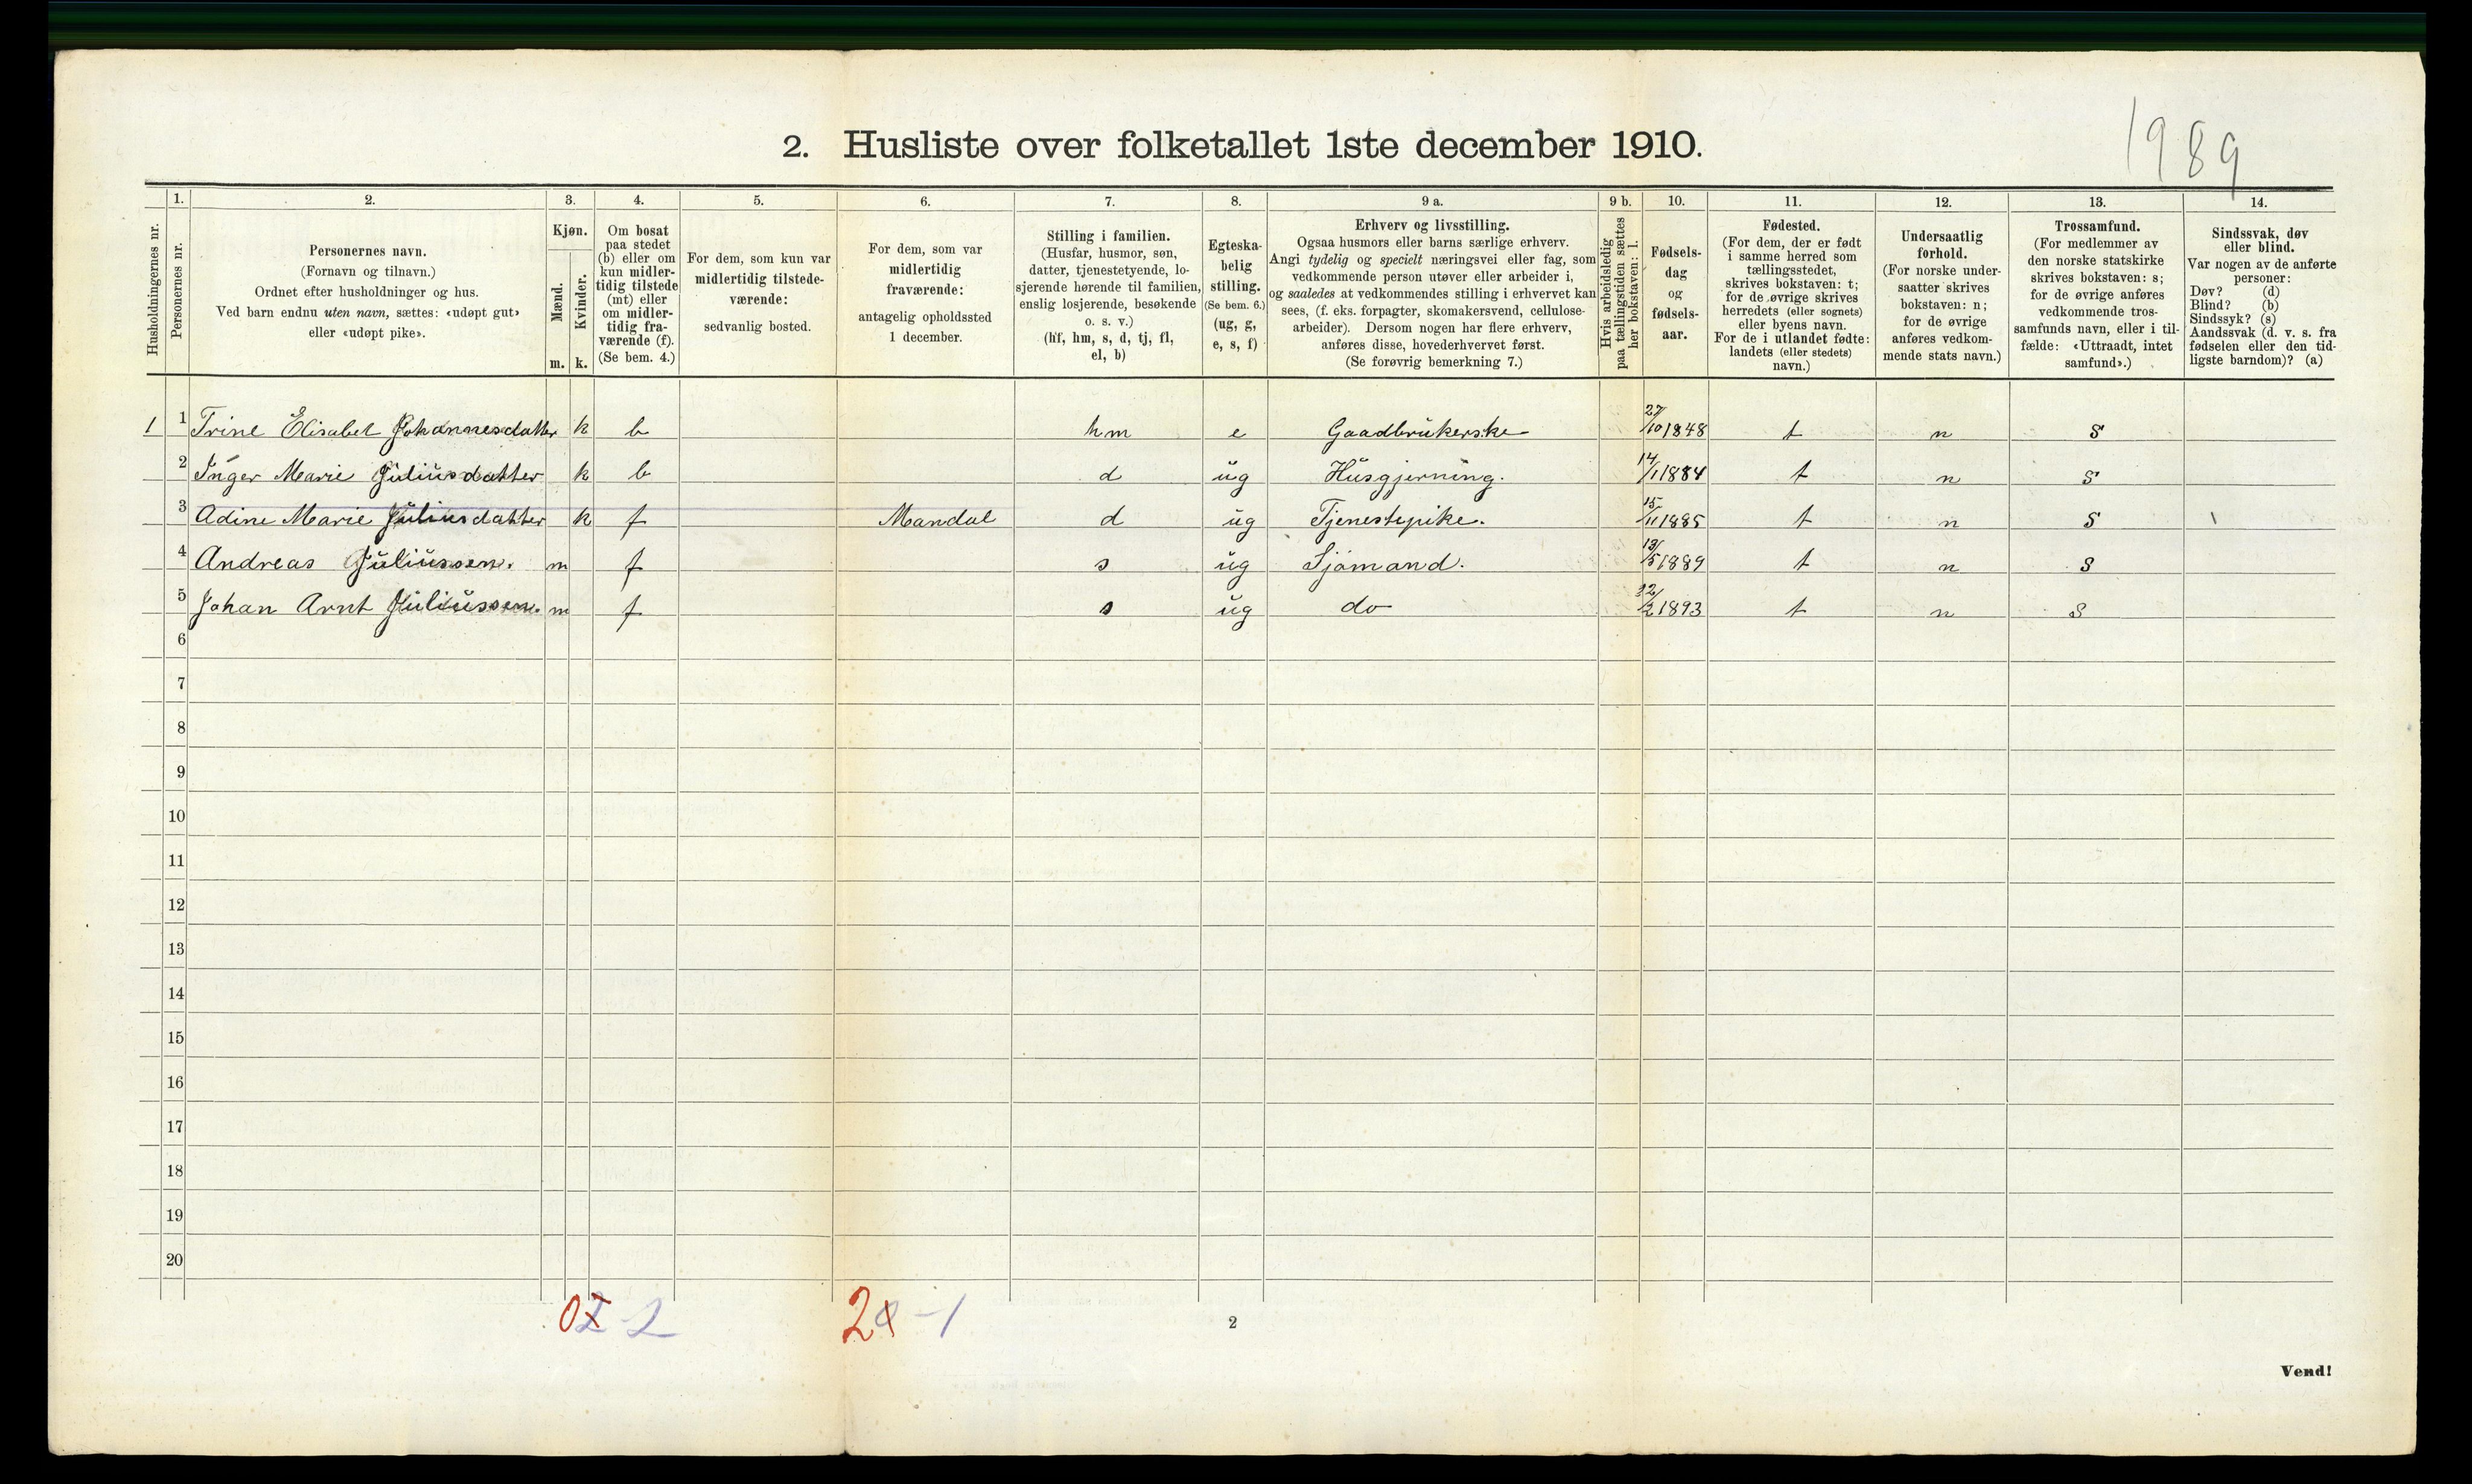 1989
2. Husliste over folketallet 1ste december 1910.
Husholdningernes nr.
1.
Personernes nr.
2.
Personernes navn.
(Fornavn og tilnavn.)
Ordnet efter husholdninger og hus.
Ved barn endnu uten navn, sættes: «udøpt gut»
eller «udøpt pike».
3.
Kjøn.
Mænd.
Kvinder.
m. k.
4.
Om bosat
paa stedet
(b) eller om
kun midler-
tidig tilstede
(mt) eller
om midler-
tidig fra-
værende (f).
(Se bem. 4.)
5.
For dem, som kun var
midlertidig tilstede-
værende:
sedvanlig bosted.
6.
For dem, som var
midlertidig
fraværende:
antagelig opholdssted
1 december.
7.
Stilling i familien.
(Husfar, husmor, søn,
datter, tjenestetyende, lo-
sjerende hørende til familien,
enslig losjerende, besøkende
o. s. v.)
(hf, hm, s, d, tj, fl,
el, b)
8.
Egteska-
belig
stilling.
(Se bem. 6.)
(ug, g,
e, s, f)
9 a.
Erhverv og livsstilling.
Ogsaa husmors eller barns særlige erhverv.
Angi tydelig og specielt næringsvei eller fag, som
vedkommende person utøver eller arbeider i,
og saaledes at vedkommendes stilling i erhvervet kan
sees, (f. eks. forpagter, skomakersvend, cellulose-
arbeider). Dersom nogen har flere erhverv,
anføres disse, hovederhvervet først.
(Se forøvrig bemerkning 7.)
9 b.
Hvis arbeidsledig
paa tællingstiden sættes
her bokstaven: l.
10.
Fødsels-
dag
og
fødsels-
aar.
11.
Fødested.
(For dem, der er født
i samme herred som
tællingsstedet,
skrives bokstaven: t;
for de øvrige skrives
herredets (eller sognets)
eller byens navn.
For de i utlandet fødte:
landets (eller stedets)
navn.)
12.
Undersaatlig
forhold.
(For norske under-
saatter skrives
bokstaven: n;
for de øvrige
anføres vedkom-
mende stats navn.)
13.
Trossamfund.
(For medlemmer av
den norske statskirke
skrives bokstaven: s;
for de øvrige anføres
vedkommende tros-
samfunds navn, eller i til-
fælde: «Uttraadt, intet
samfund».)
14.
Sindssvak, døv
eller blind.
Var nogen av de anførte
personer:
Døv? (d)
Blind? (b)
Sindssyk? (s)
Aandssvak (d. v. s. fra
fødselen eller den tid-
ligste barndom)? (a)
1 1 Trine Elisabet Johannesdatter k b hm e Gaadbrukerske 27/10 1848 t n s
2 Inger Marie Juliusdatter k b d ug Husgjerning. 14/1 1884 t n s
3 Adine Marie Juliusdatter k f Mandal d ug Tjenestepike. 15/11 1885 t n s
4 Andreas Juliussen. m f s ug Sjømand. 13/5 1889 t n s
5 Johan Arnt Juliussen. m f s ug do /2 1893 t n s
6
7
8
9
10
11
12
13
14
15
16
17
18
19
20
2
Vend!